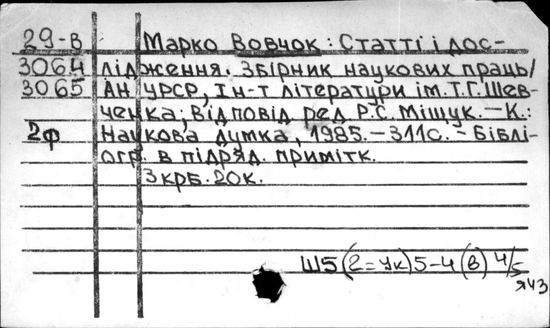 29-В Марко Вовчок: Статті і дос-
3064 лідження. Збірник наукових праць/
3065 АН УРСР, Ін-т літератури ім. Т.Г. Шев-
ченка; Відповід ред Р.С. Міщук. - К.:
2ф Наукова думка, 1985. - 311с. - Біблі-
огр. в підряд. примітк.
3 крб. 20к.
Ш5(2=Ук)5-4(В) 4/5
я43